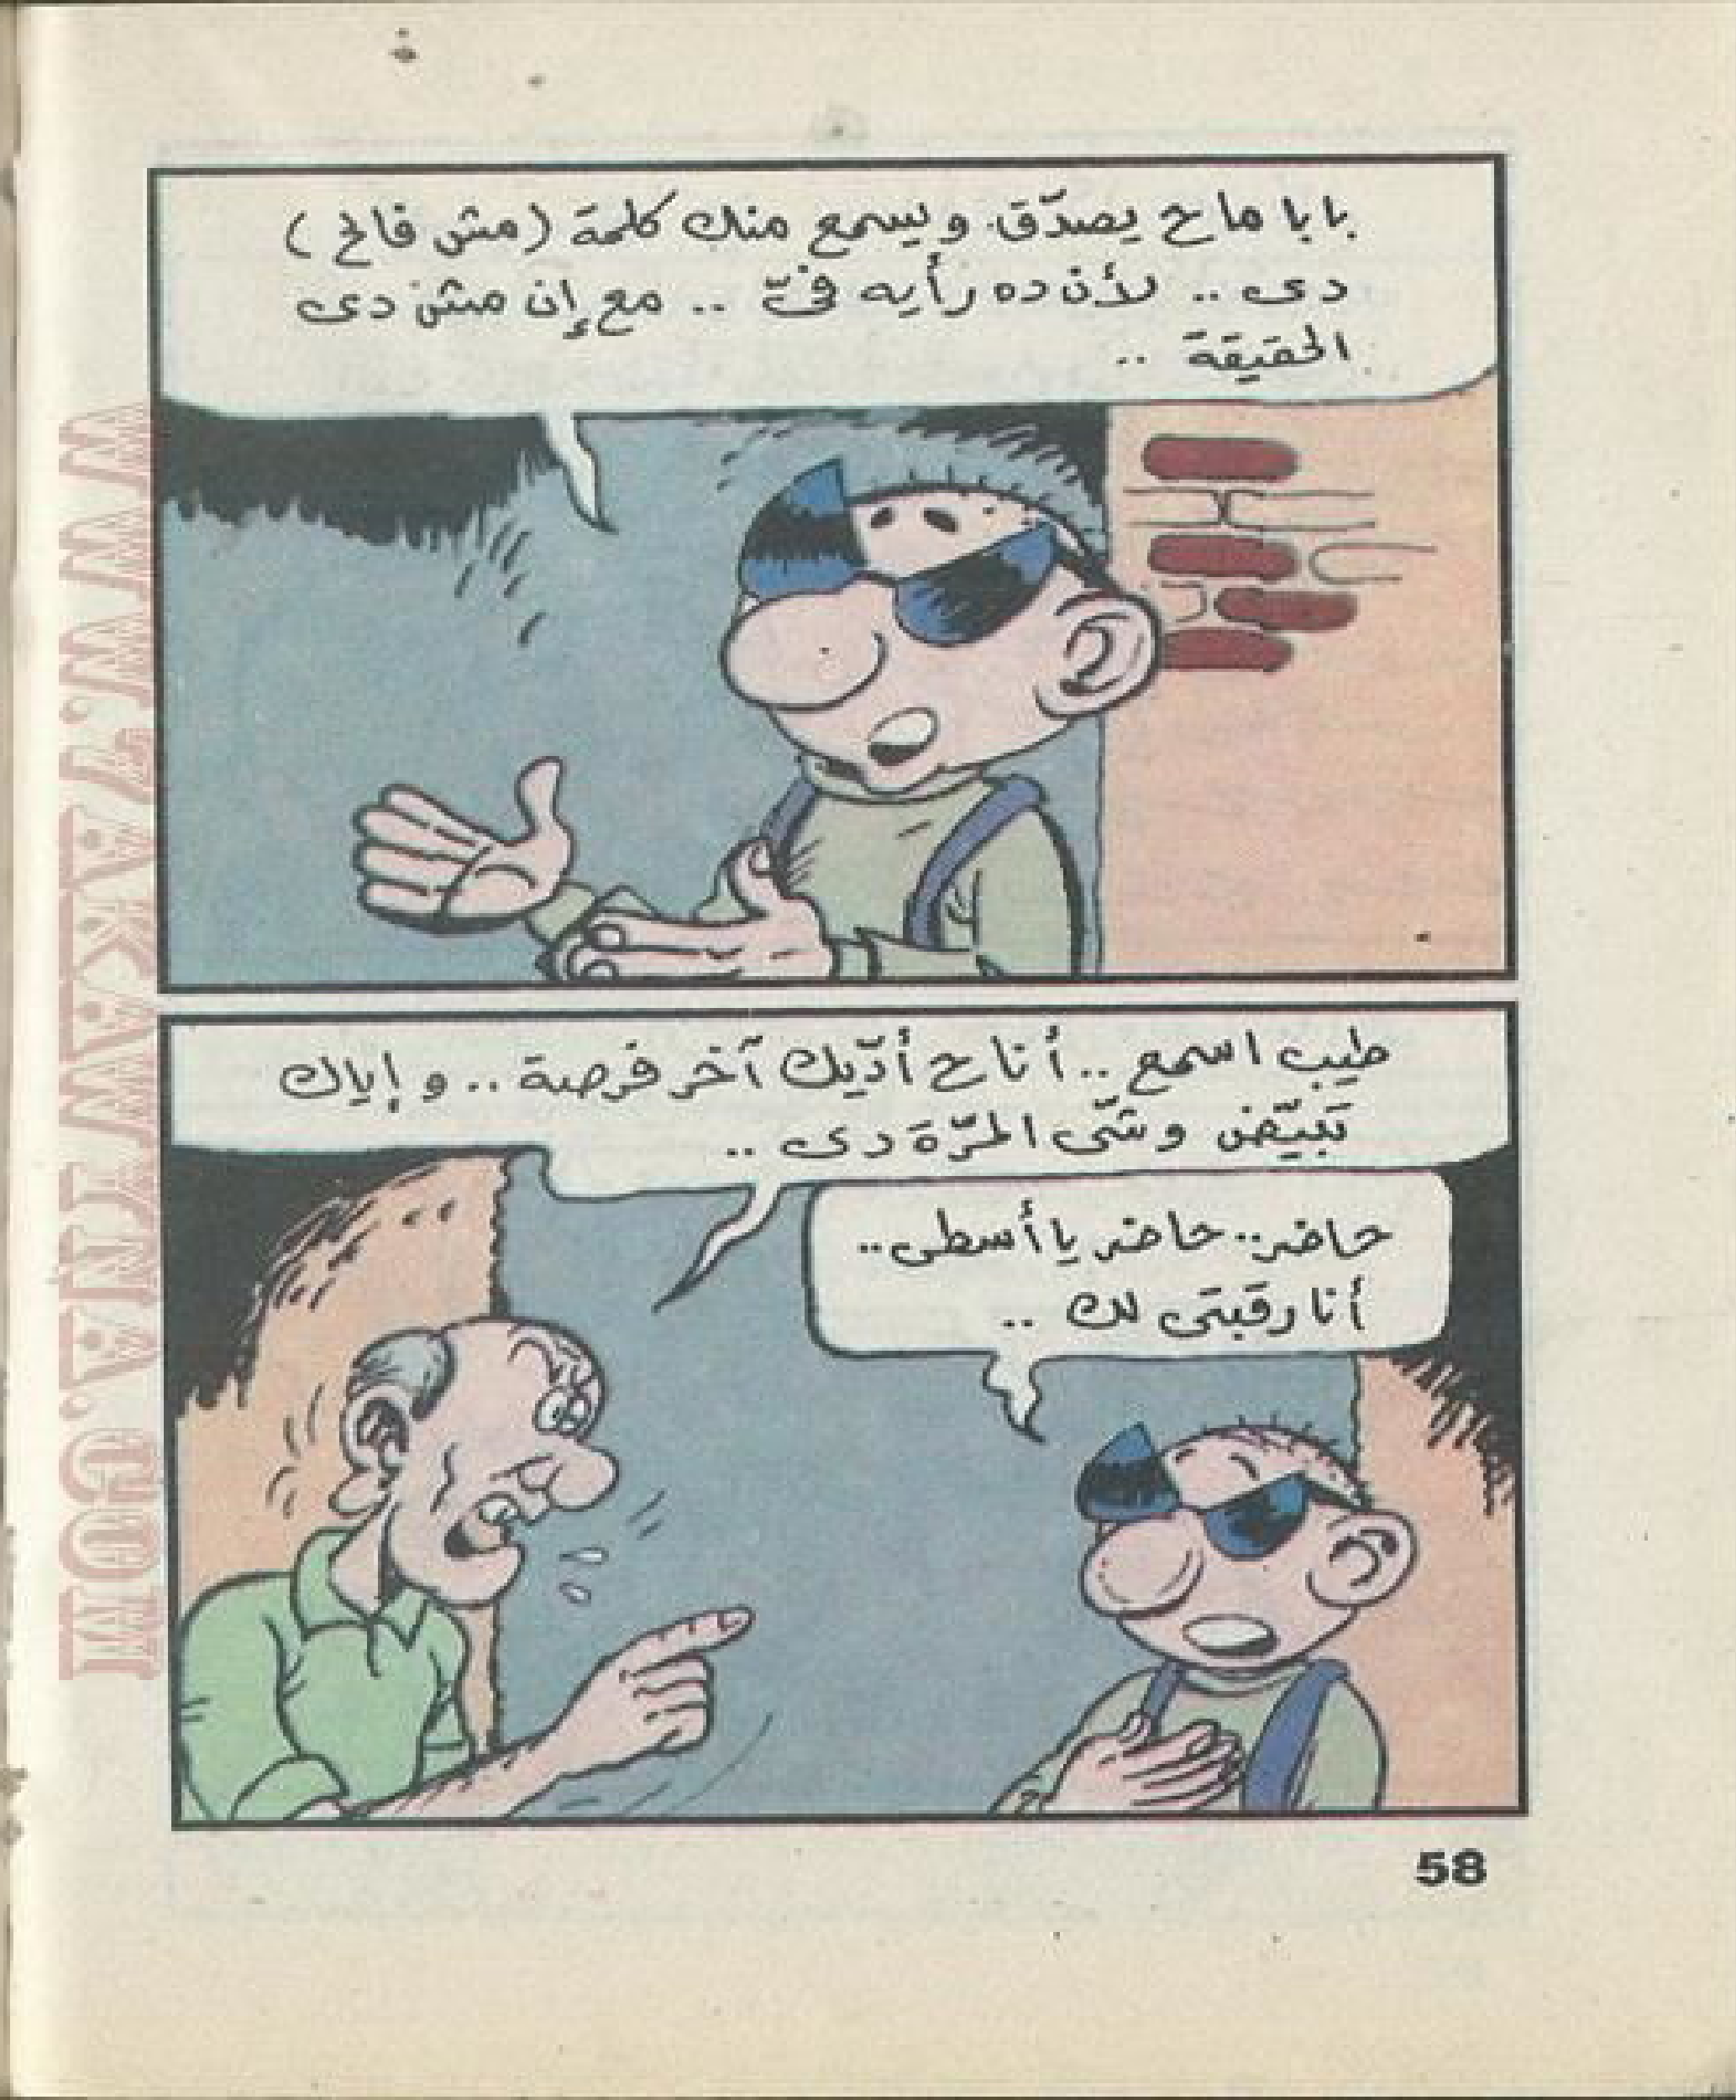 بابا ماح يصدّق ويسمع منك كلمة (مش فالح)
دى .. لأن ده رأيه فىّ .. مع إن مش دى
الحقيقة ..
طيب اسمع .. أنا ح أدّيك آخر فرصة .. وإياك
تبيّض وشّى المرّة دى ..
حاضر .. حاضر يا أسطى ..
أنا رقبتى لك ..
58
WWW.7AKAWITNA.COM